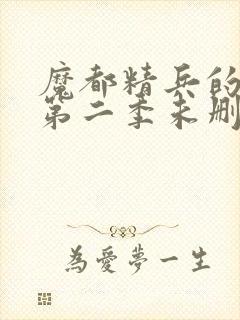 魔都精兵的
第二季未删
為愛夢一生